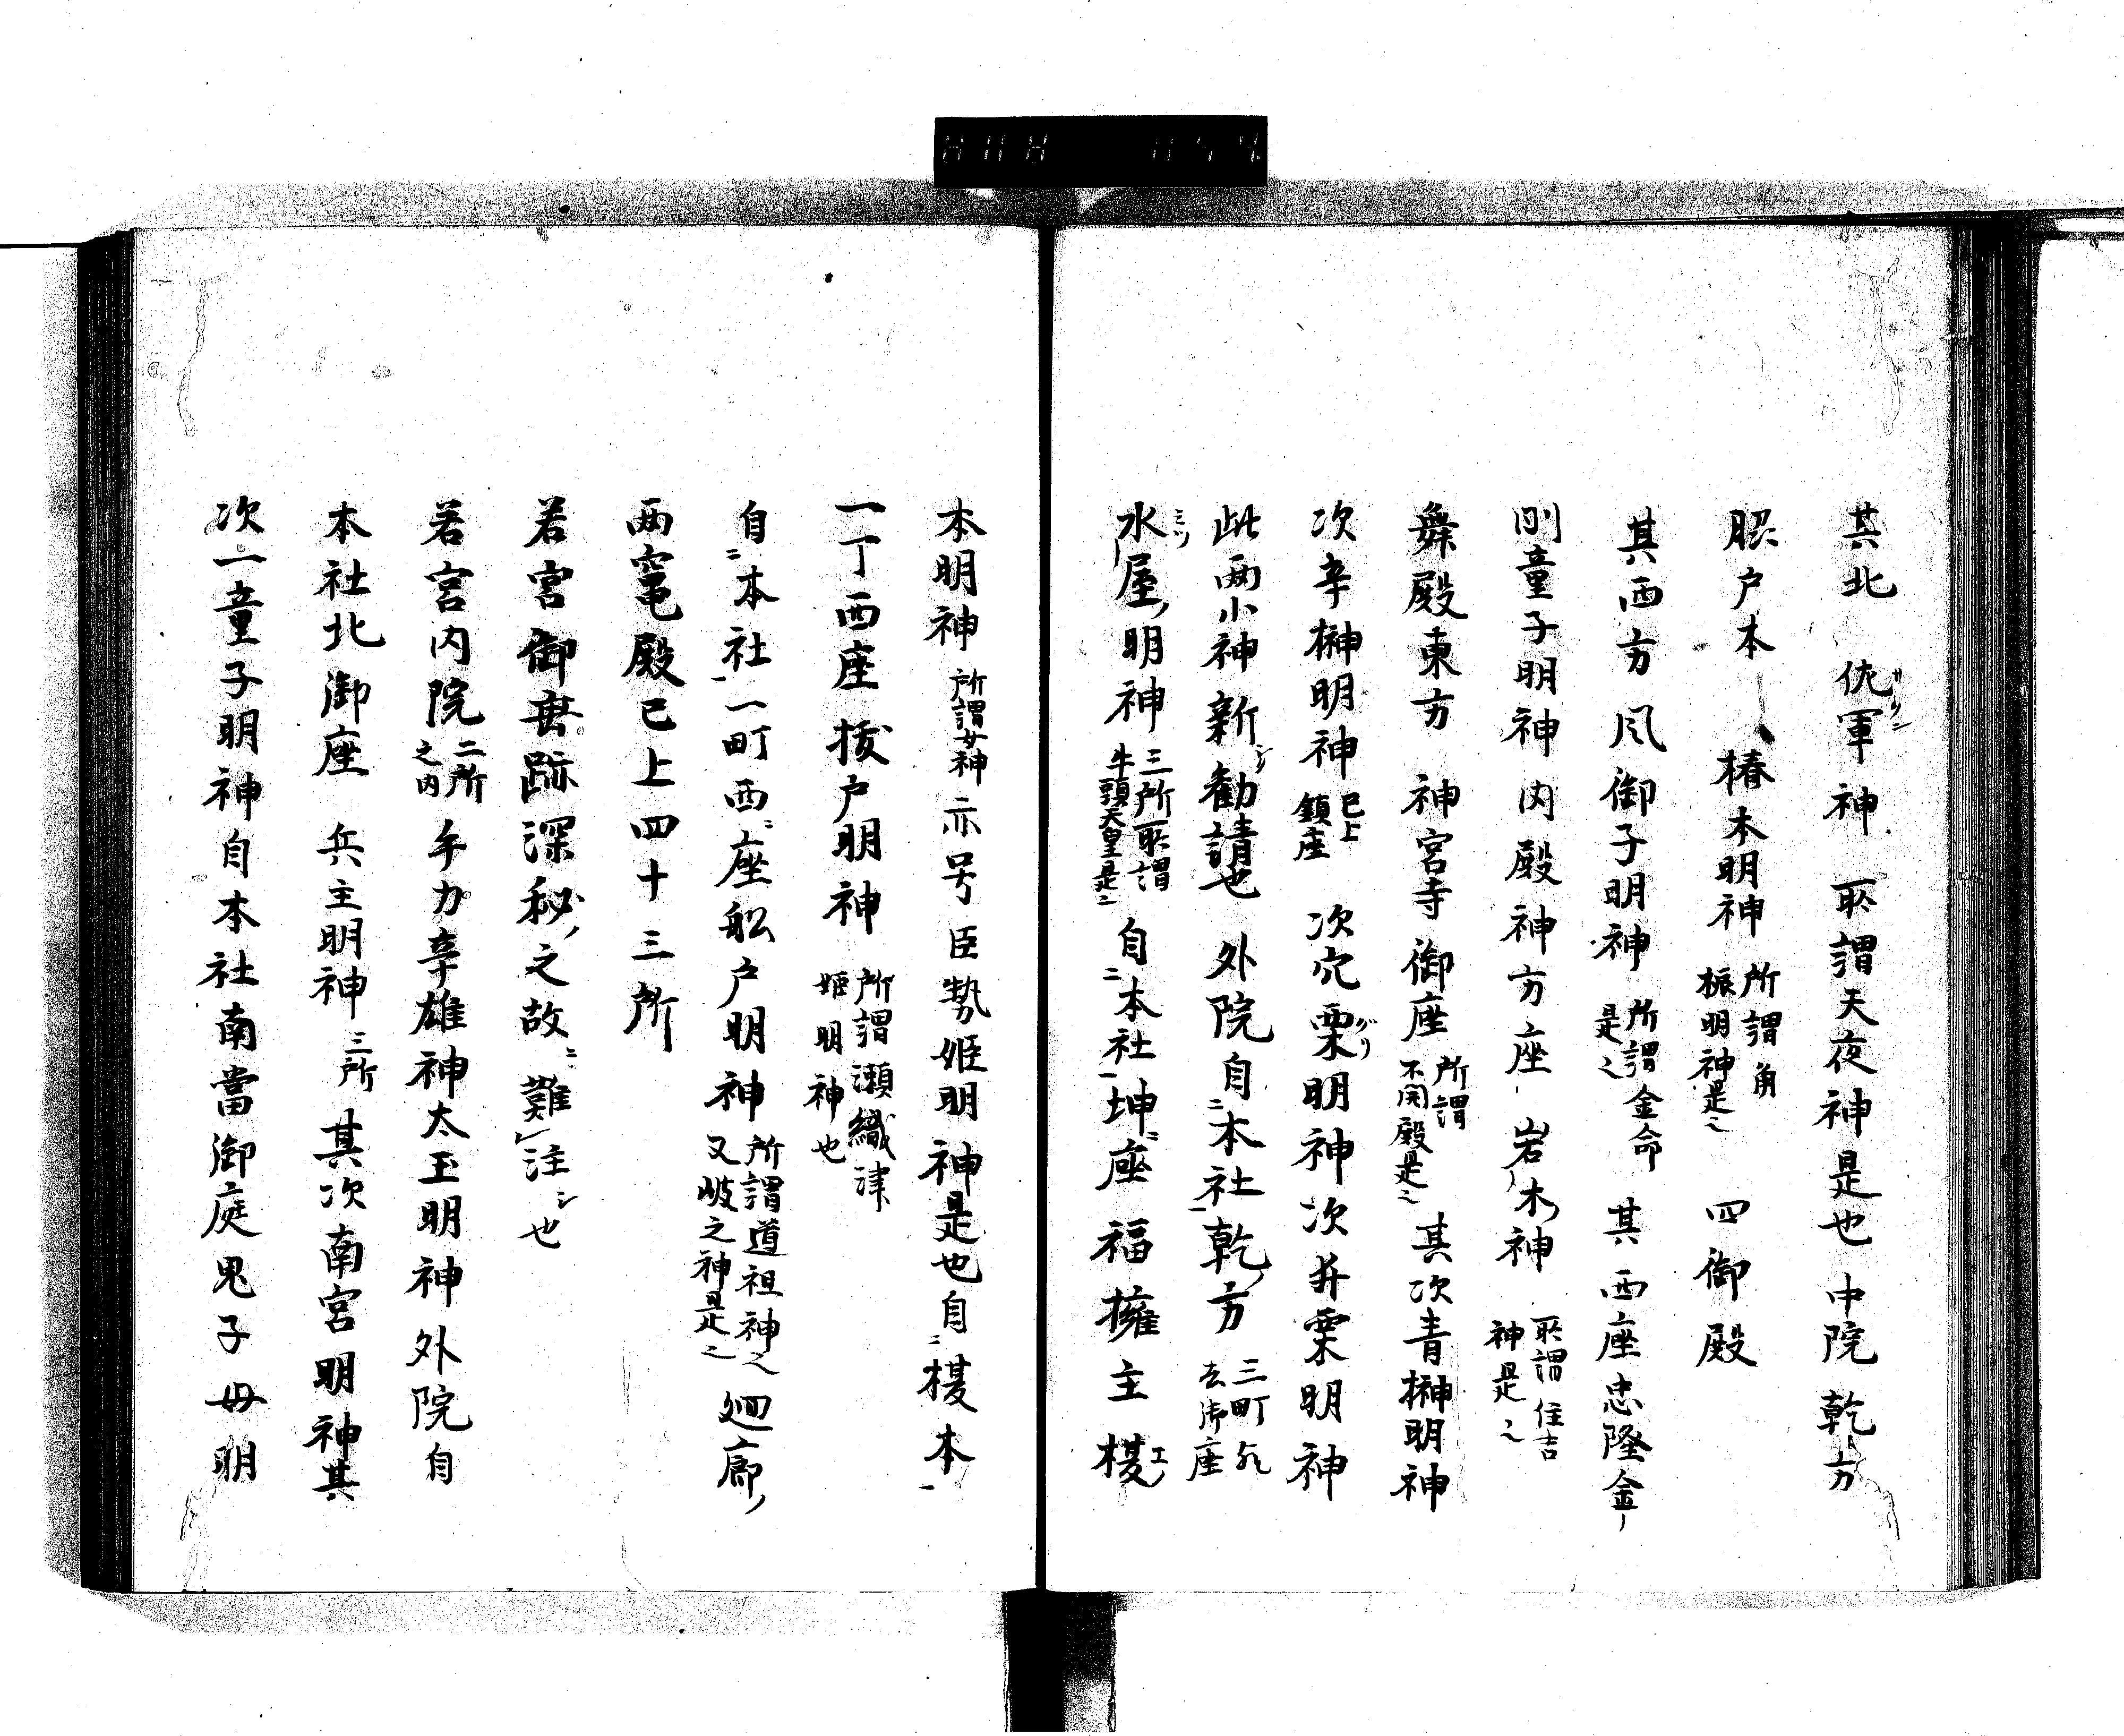 其北 佐軍神 所謂天夜神是也 中院乾方
戸本 椿本明神 所謂角振明神是也 四御殿
其西方風御子明神 所謂金命是也 其西座忠隆金
剛童子明神内殿神方座 岩木神 所謂住吉神是也
舞殿東方 神宮寺御座 所謂不開殿是也 其次青榊明神
次辛榊明神 已上鎮座 次穴栗明神次井栗明神
此両小神新勧請也 外院自本社乾方 三町 去御座
水屋明神 三所所謂牛頭天皇是也 自本社坤座福擁主榎
本明神 所謂女神 亦号臣勢姫明神是也自榎本
一丁西座祓戸明神 所謂瀬織津姫明神也
自本社一町西座船戸明神 所謂道祖神也又岐之神是也 廻廊
両竃殿已上四十三所
若宮御垂跡深秘之故難注也
若宮内院 二所之内 手力辛雄神太玉明神外院自
本社北御座 兵主明神 三所 其次南宮明神其
次一童子明神自本社南當御庭鬼子母明